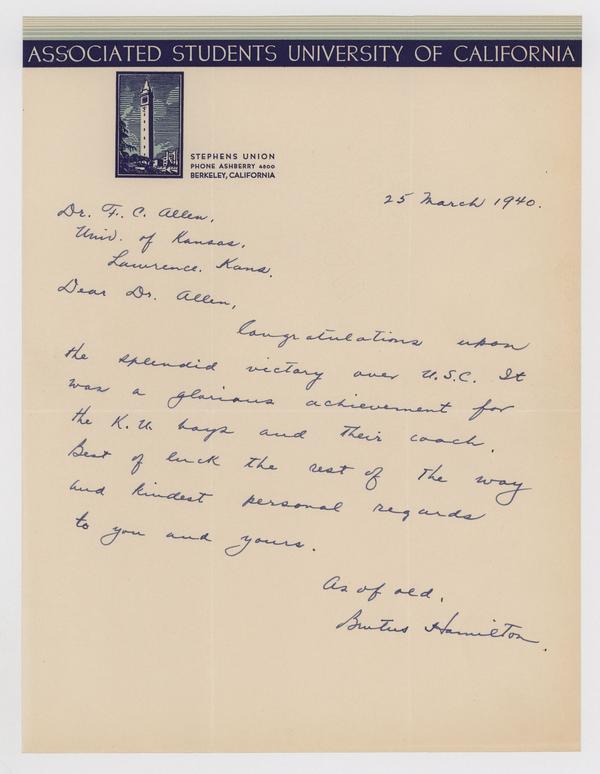 ASSOCIATED STUDENTS UNIVERSITY OF CALIFORNIA
STEPHENS UNION
PHONE ASHBERRY 4800
BERKELEY, CALIFORNIA
25 March 1940.
Dr. F. C. Allen,
Univ. of Kansas,
Lawrence. Kans.
Dear Dr. Allen,
Congratulations upon
the splendid victory over U.S.C. It
was a glorious achievement for
the K.U. boys and their coach.
Best of luck the rest of the way
and kindest personal regards
to you and yours.
As of old,
Brutus Hamilton.